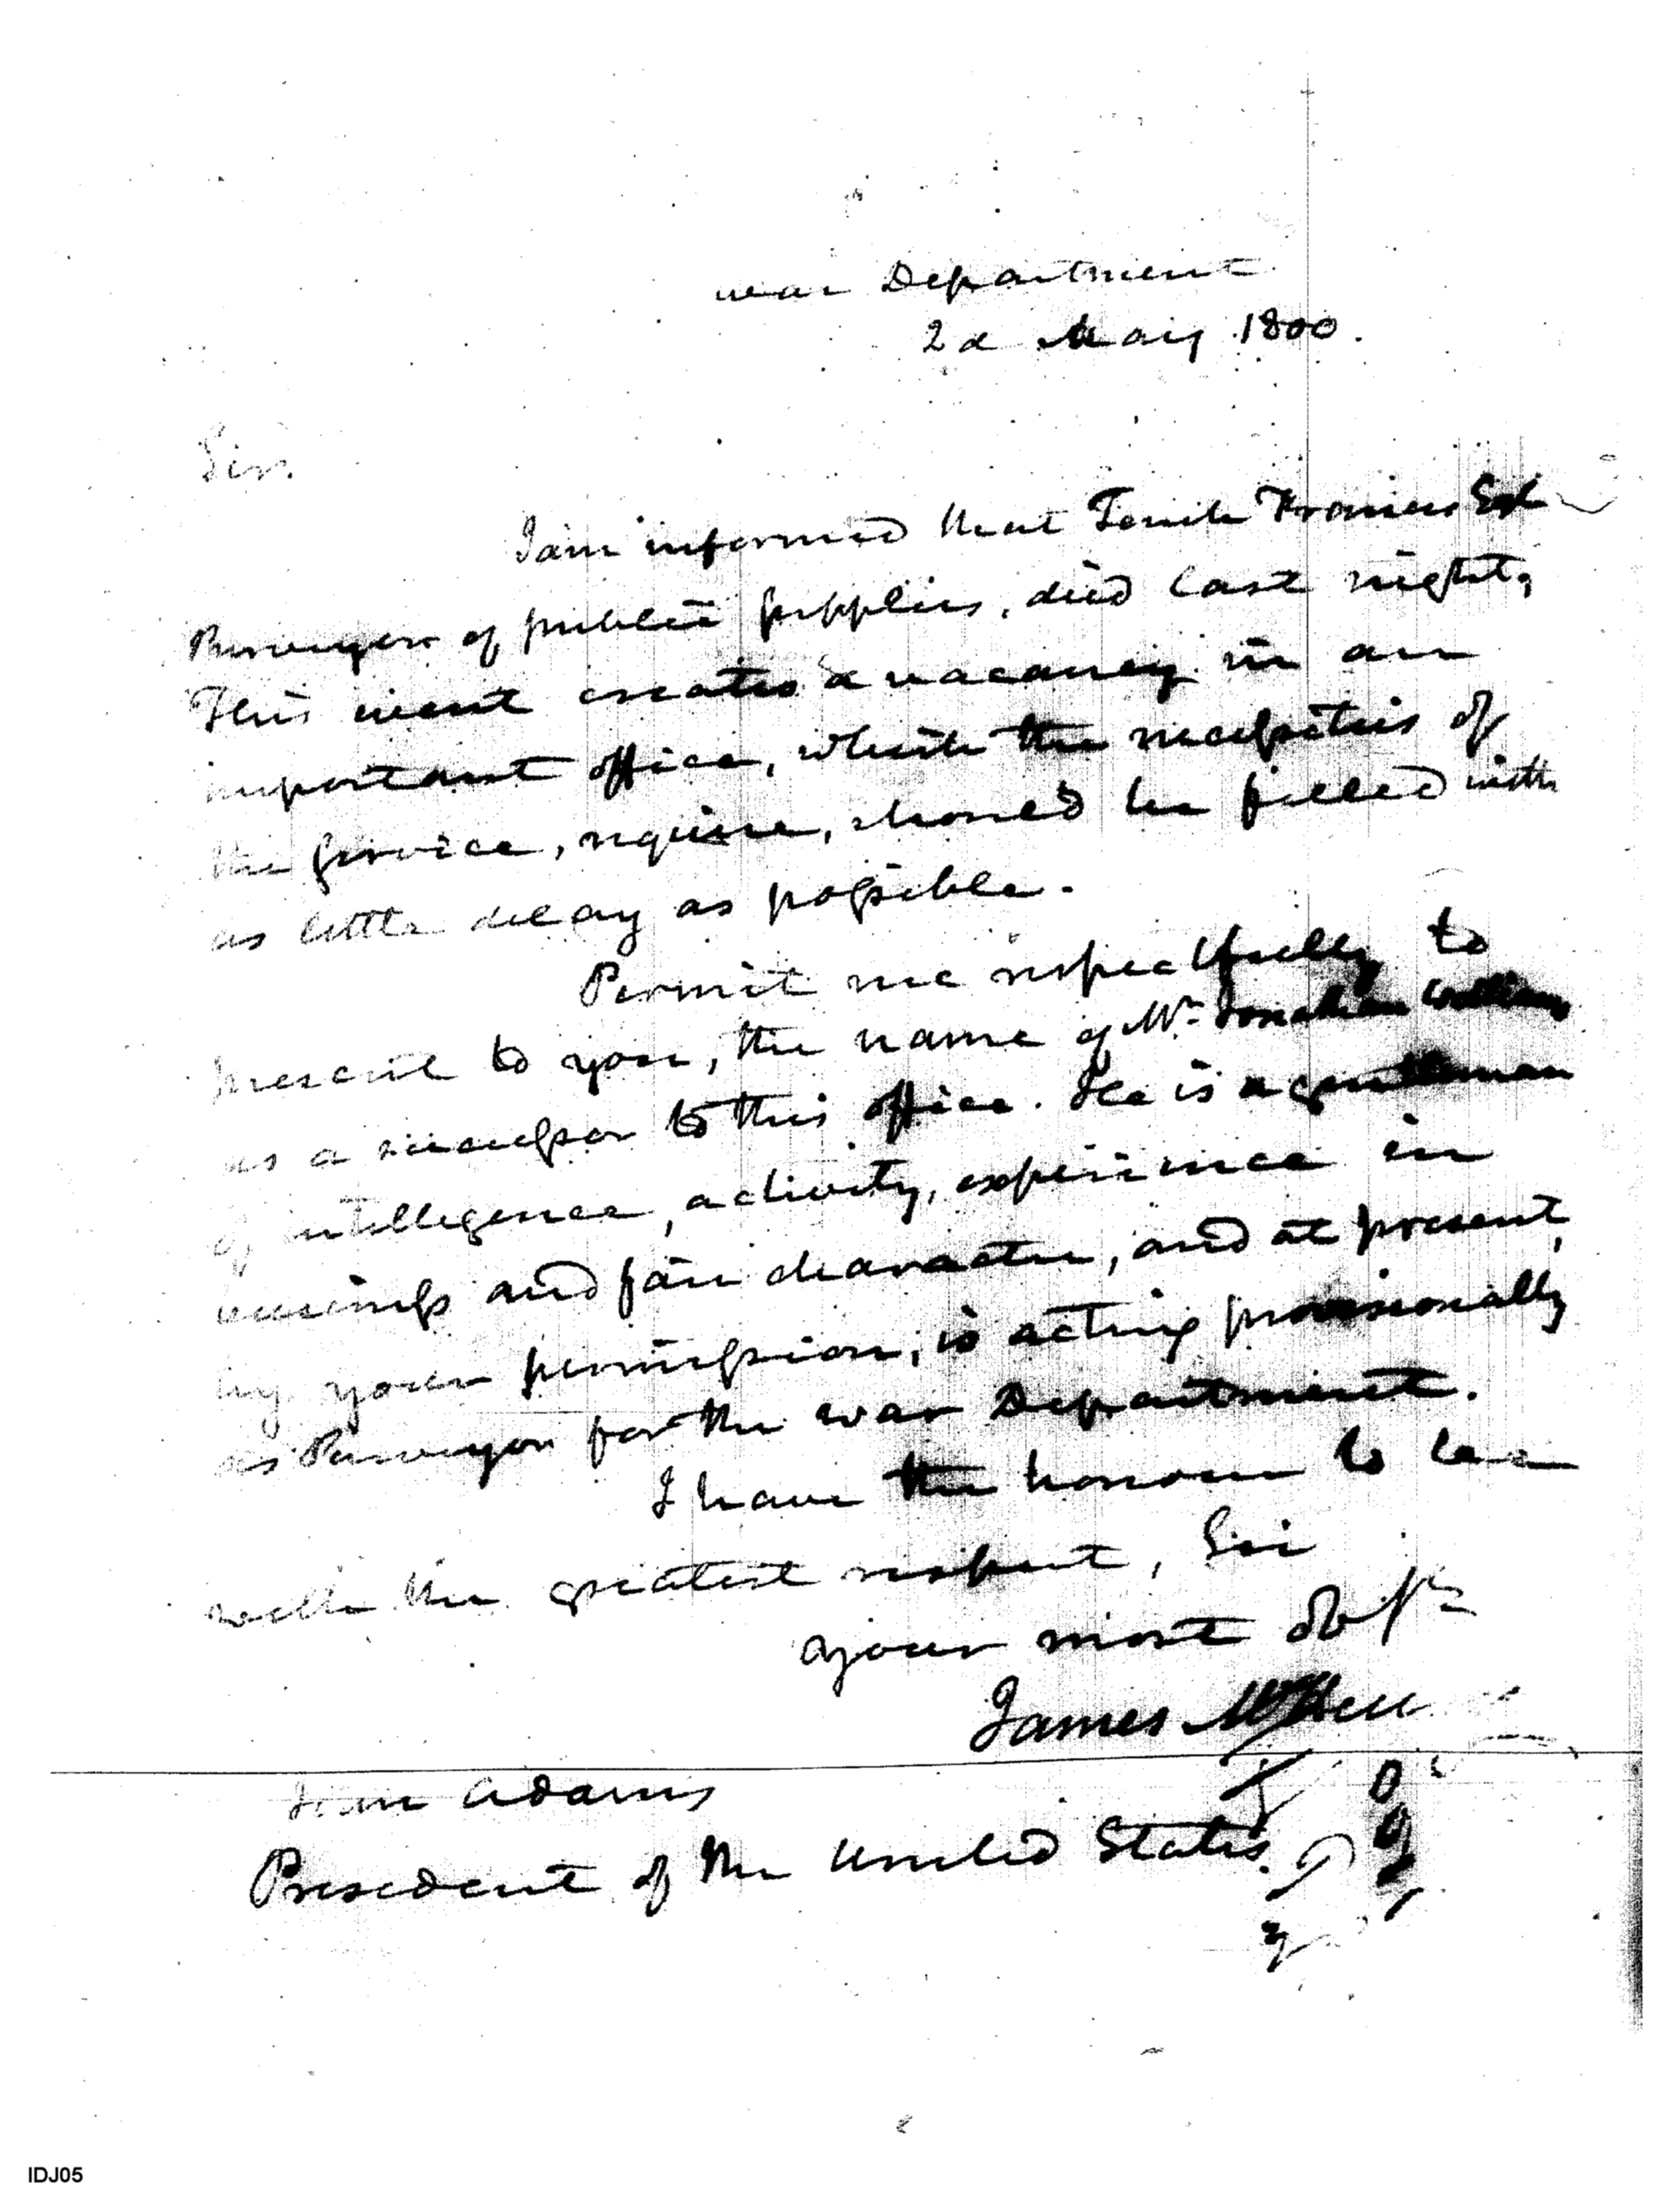 War Department
2d May 1800.
Sir,
I am informed that Tench Francis Esqr
Purveyor of public supplies, died last night,
This event creates a vacancy in an
important office, which the necessities of
the service, require, should be filled with
as little delay as possible.
Permit me respectfully to
present to you, the name of Mr. Jonathan Williams
as a successor to this office. He is a gentleman
of intelligence, activity, experience in
business and fair character, and at present,
by your permission, is acting provisionally
as Purveyor for the war Department.
I have the honour to be
with the greatest respect, Sir
your most ob st
James McHenry
John Adams
President of the United States.
IDJ05